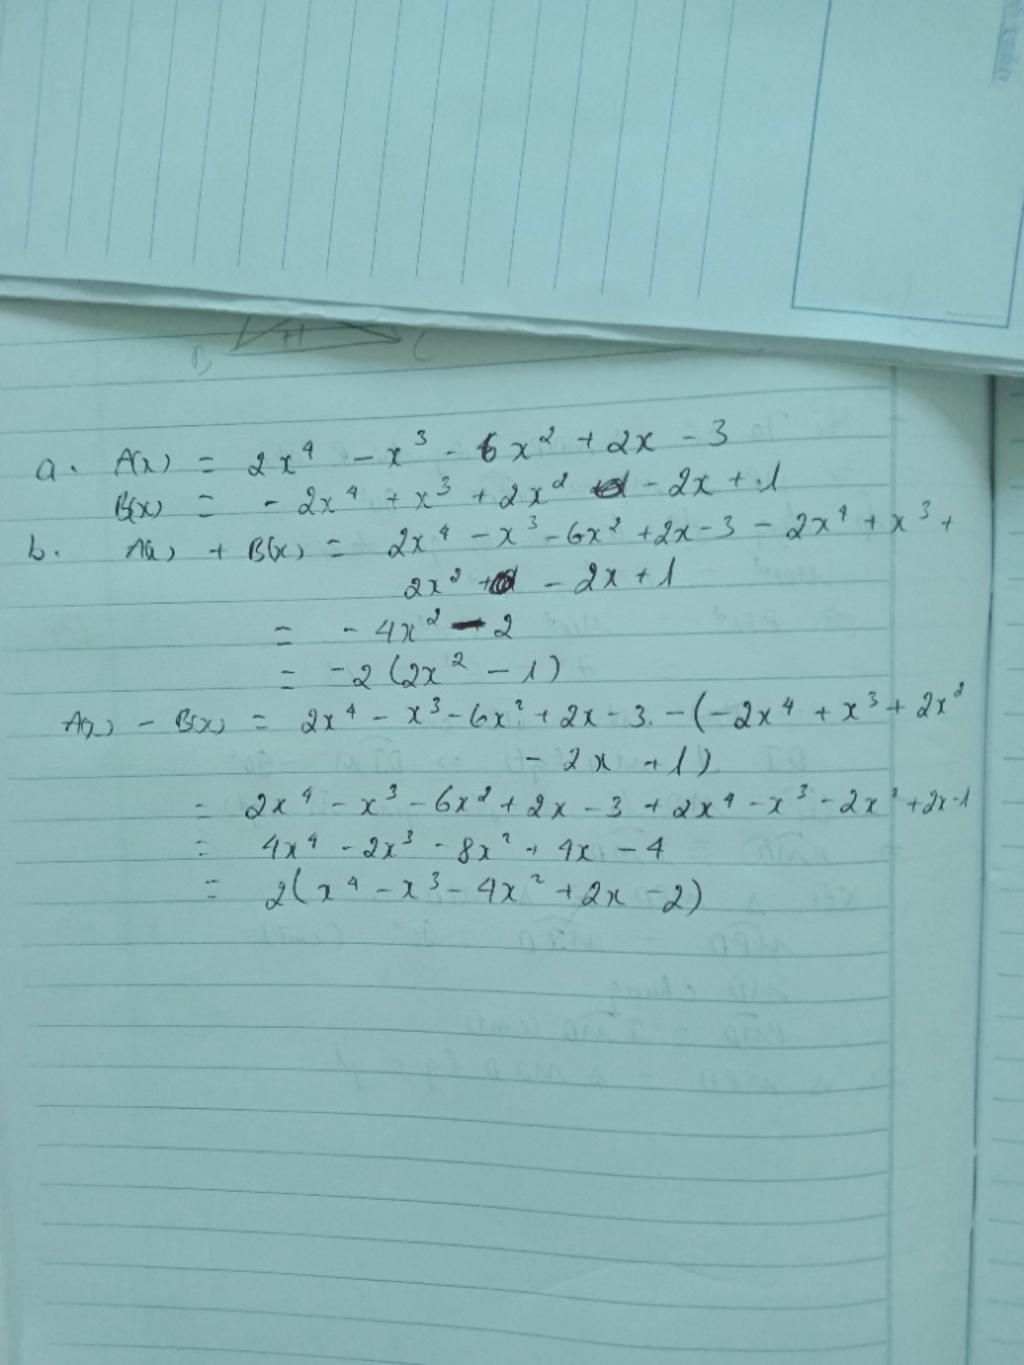 B H C
a. A(x) = 2x⁴ - x³ - 6x² + 2x - 3
B(x) = - 2x⁴ + x³ + 2x² - 2x + 1
b. A(x) + B(x) = 2x⁴ - x³ - 6x² + 2x - 3 - 2x⁴ + x³ +
2x² - 2x + 1
= - 4x² - 2
= - 2 (2x² - 1)
A(x) - B(x) = 2x⁴ - x³ - 6x² + 2x - 3. - (- 2x⁴ + x³ + 2x²
- 2x + 1)
= 2x⁴ - x³ - 6x² + 2x - 3 + 2x⁴ - x³ - 2x² + 2x - 1
= 4x⁴ - 2x³ - 8x² + 4x - 4
= 2(x⁴ - x³ - 4x² + 2x - 2)